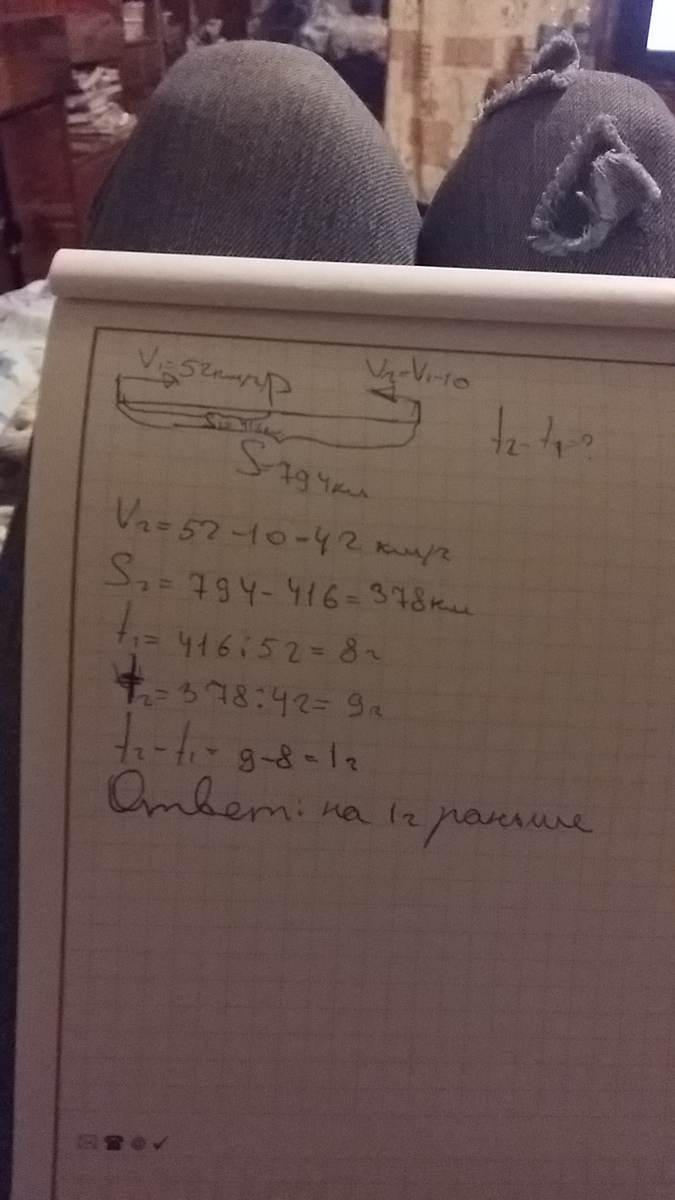 V₁=52км/ч V₂=V₁-10
S₁=416км
t₂-t₁-?
S=794км
V₂=52-10-42 км/ч
S₂=794-416=378км
t₁=416:52=8ч
t₂=378:42=9ч
t₂-t₁= 9-8=1ч
Ответ: на 1ч раньше